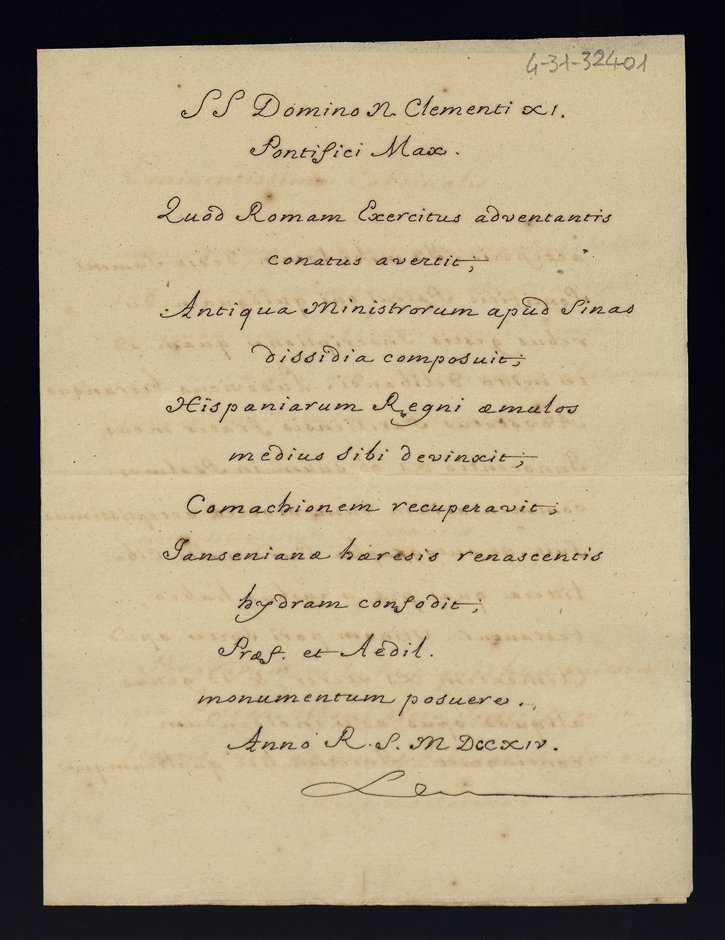 4-31-32401
SS Domino N Clementi XI.
Pontifici Max.
Quod Romam Exercitus adventantis
conatus avertit;
Antiqua Ministrorum apud Sinas
dissidia composuit;
Hispaniarum Regni æmulos
medius sibi devinxit;
Comachionem recuperavit;
Jansenianæ hæresis renascentis
hydram confodit;
Præf. et Aedil.
monumentum posuere.
Anno R. S. M DCCXIV.